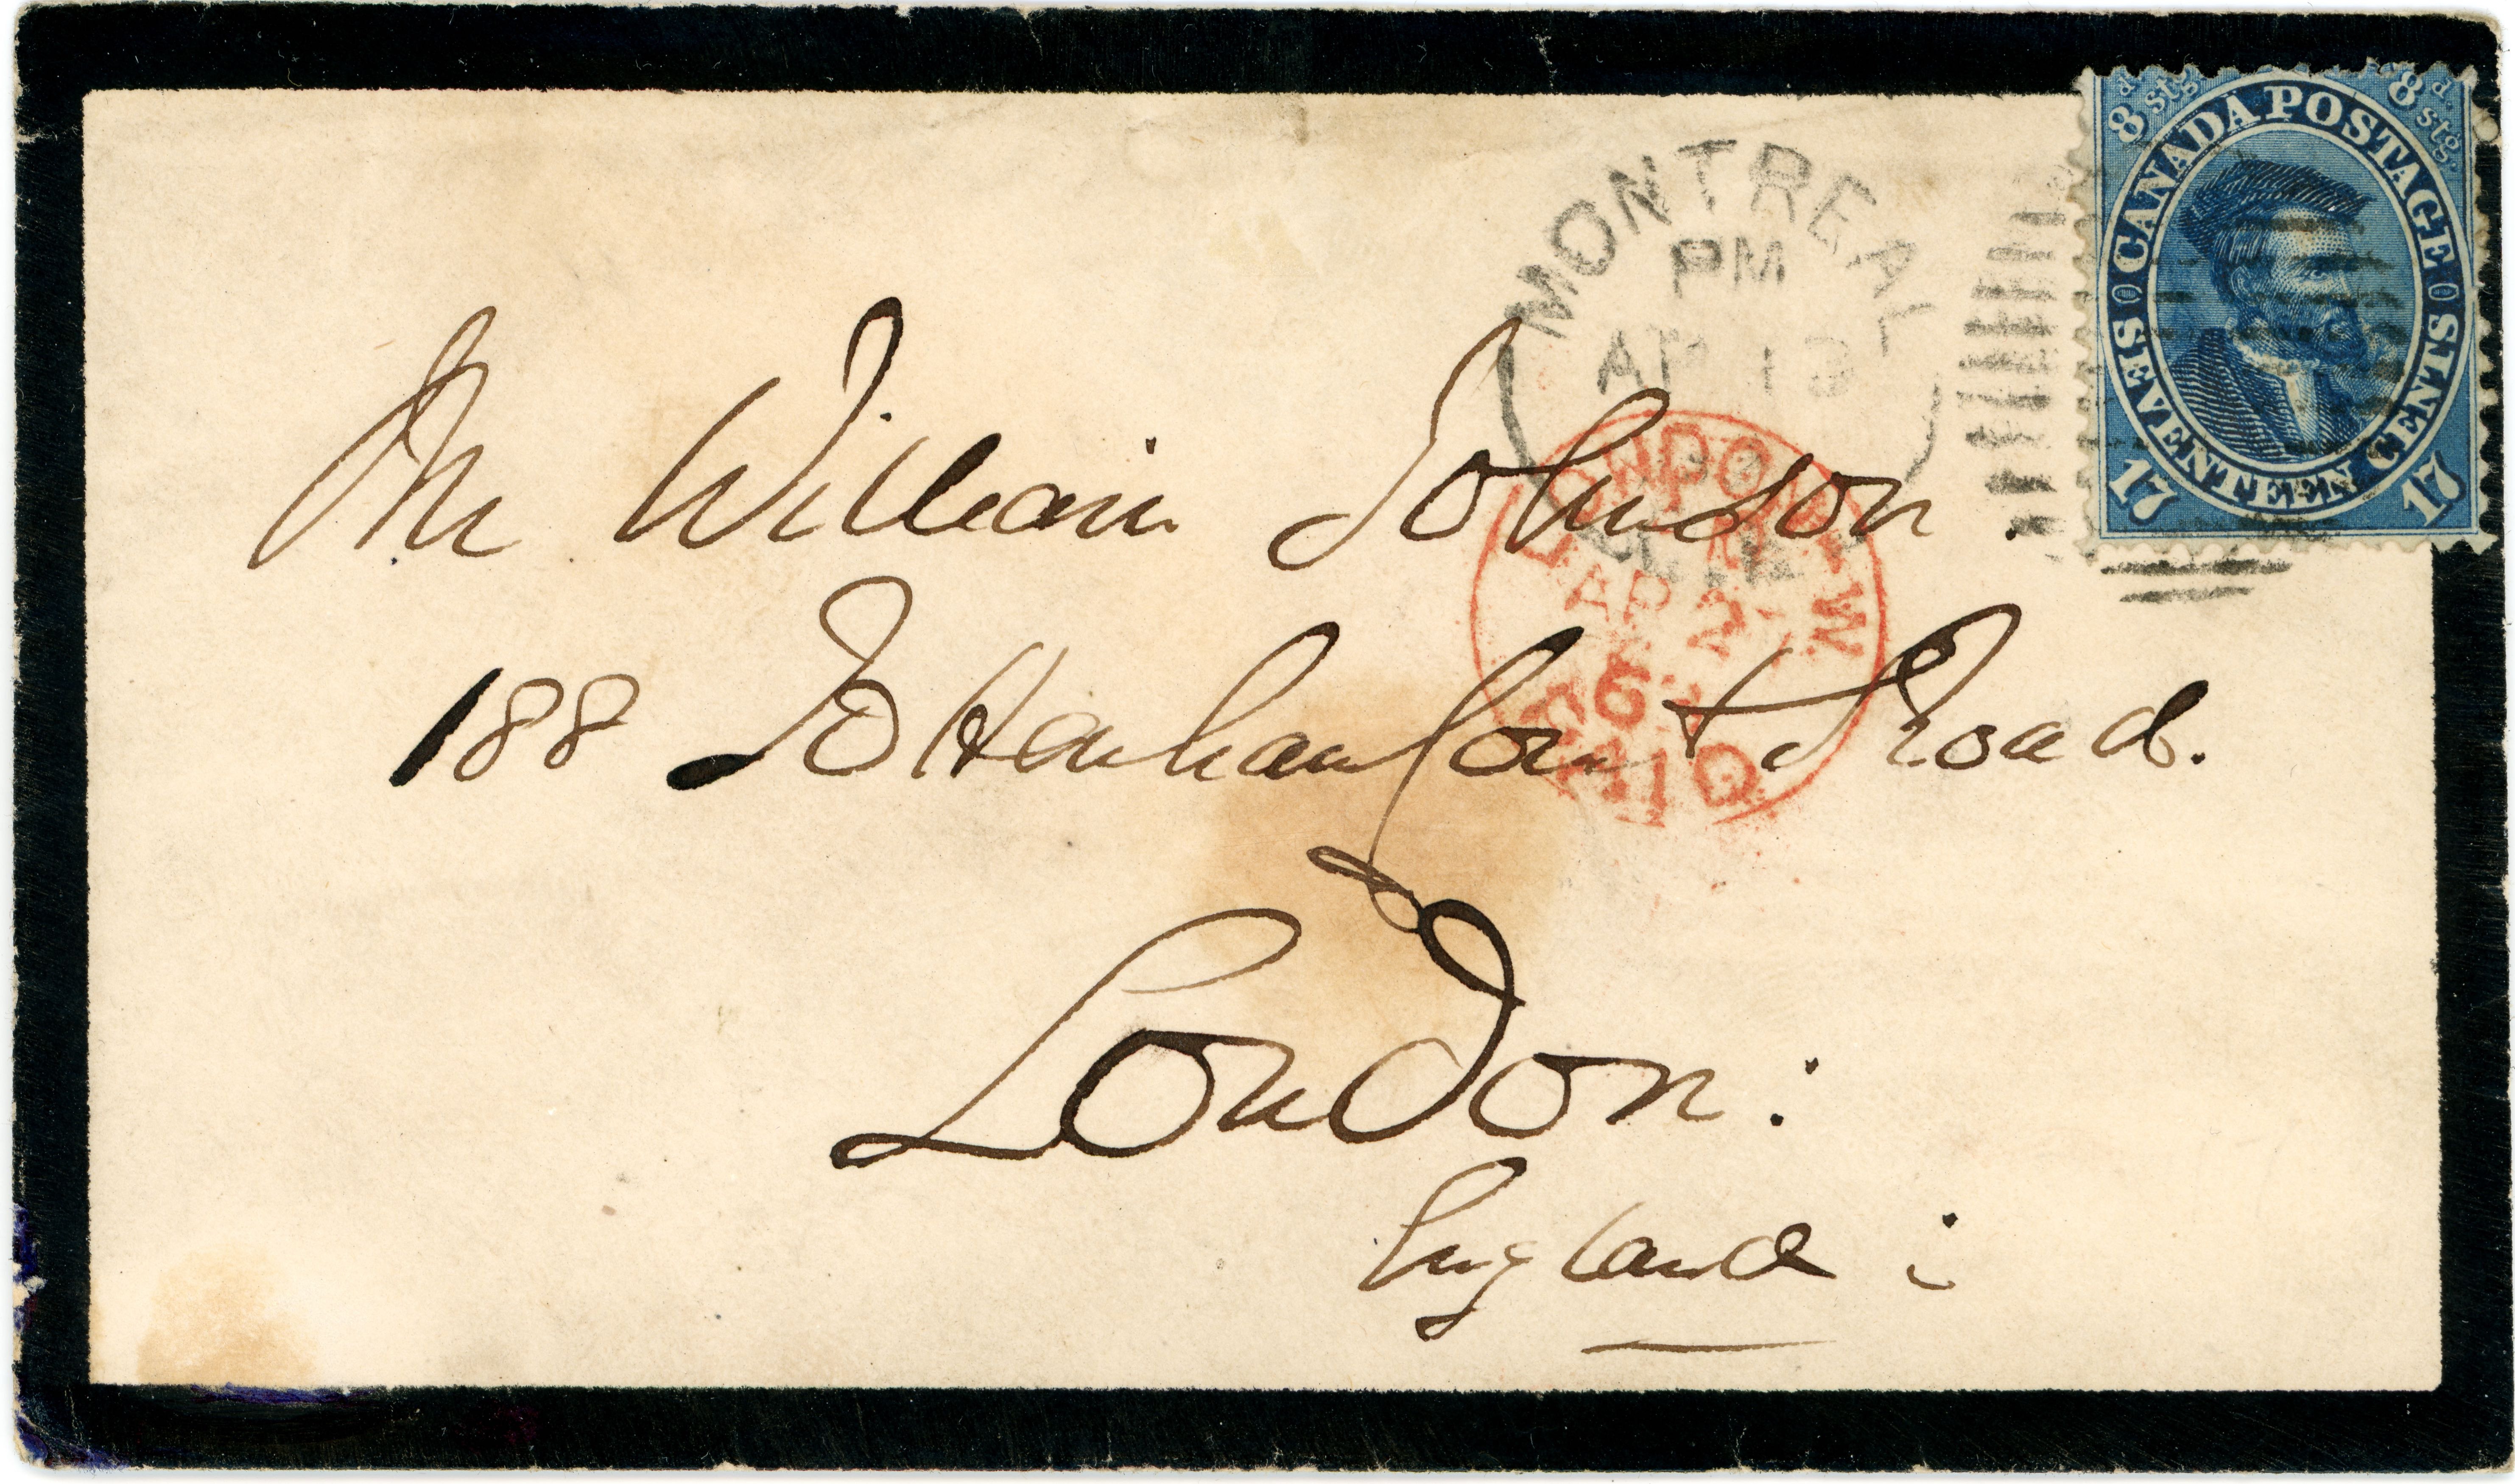 8d stg 8d. stg.
CANADA POSTAGE
SEVENTEEN CENTS
17 17
MONTREAL
PM
AP 13
LONDON W
AP 2
6
Mr William Johnson.
188 Tottenham Court Road.
London:
England: